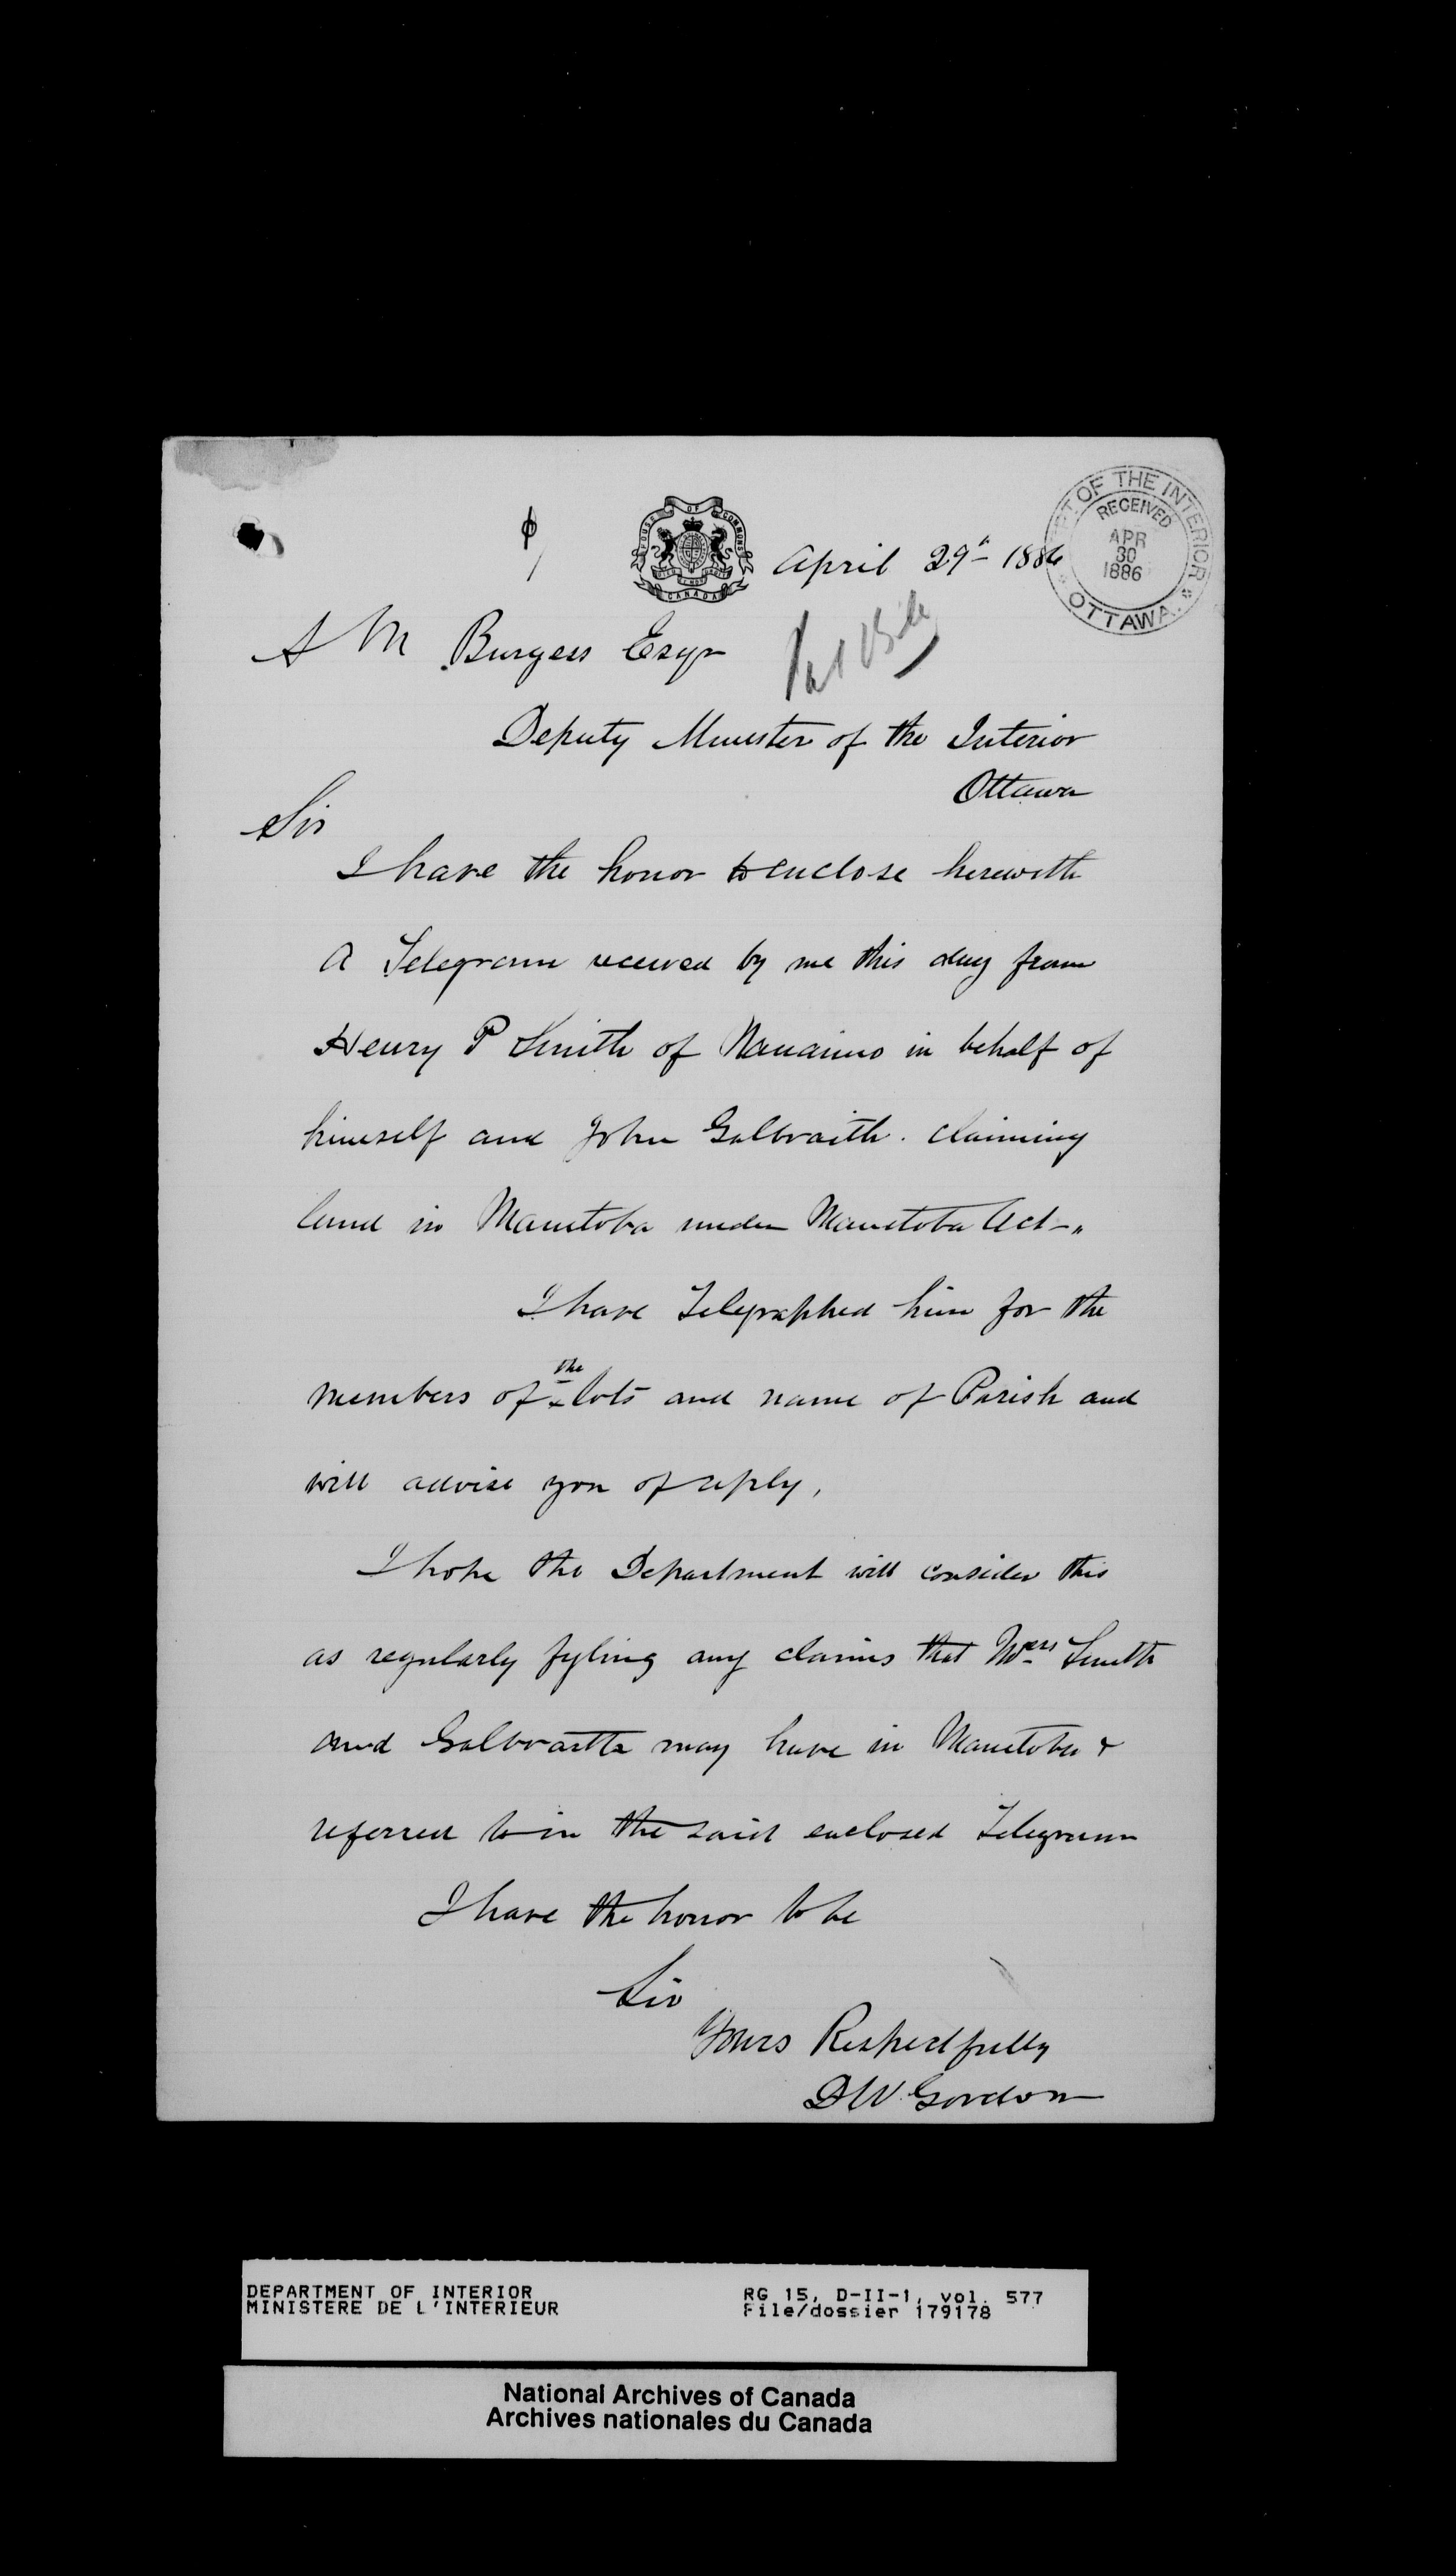 HOUSE OF COMMONS
CANADA
DEPT OF THE INTERIOR
RECEIVED
APR
30
1886
OTTAWA
April 29th 1886
A M Burgess Esqr
Deputy Minister of the Interior
Ottawa
Sir
I have the honor to enclose herewith
a Telegram received by me this day from
Henry P Smith of Nanaimo in behalf of
himself and John Galbraith. claiming
land in Manitoba under Manitoba Act
I have Telegraphed him for the
numbers of the lots and name of Parish and
will advise you of reply,
I hope the Department will consider this
as regularly fyling any claims that Messrs Smith
and Galbraith may have in Manitoba &
referred to in the said enclosed Telegram
I have the honor to be
Sir
Yours Respectfully
D W Gordon
DEPARTMENT OF INTERIOR
MINISTERE DE L'INTERIEUR
RG 15, D-II-1, vol. 577
File/dossier 179178
National Archives of Canada
Archives nationales du Canada